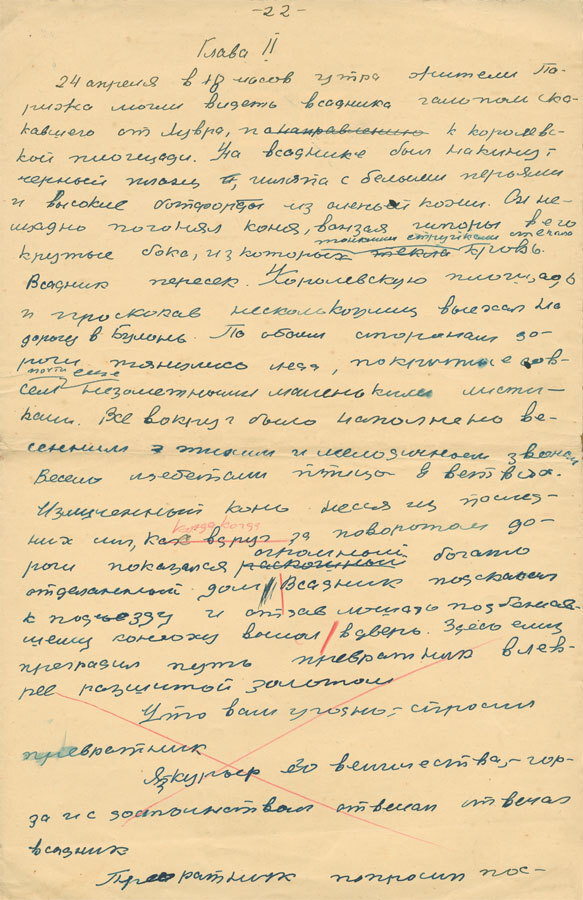 -22-
Глава II
24 апреля в 18 часов утра жители Па-
рижа могли видеть всадника галопом ска-
кавшего от Лувра, по направлению к королевс-
кой площади. На всаднике был накинут
черный плащ, шляпа с белыми перьями
и высокие ботфорты из оленьей кожи. Он не-
щадно погонял коня, вонзая шпоры в его
тонкими струйками стекала
крутые бока, из которых текла кровь.
Всадник пересек Королевскую площадь
и проскакав несколько улиц выехал на
дорогу в Булонь. По обоим сторонам до-
роги тянулись леса, покрытые сов-
почти еще
сем незаметными маленькими листи-
ками. Все вокруг было наполнено ве-
сенним и мелодичным звоном
Весело щебетали птицы в ветвях.
Измученный конь несся из послед-
когда когда
них сил, как вдруг за поворотом до-
огромный
роги показался роскошный богато
отделанный дом Всадник подскакал
к подъезду и отдав лошадь подбежав-
шему конюху вошел в дверь. Здесь ему
преградил путь превратник в лев-
рее разшитой золотом
Что вам угодно, - спросил
превратник
Я курьер его величества, - гор-
до и с достоинством отвечал отвечал
всадник
Превратник попросил пос-